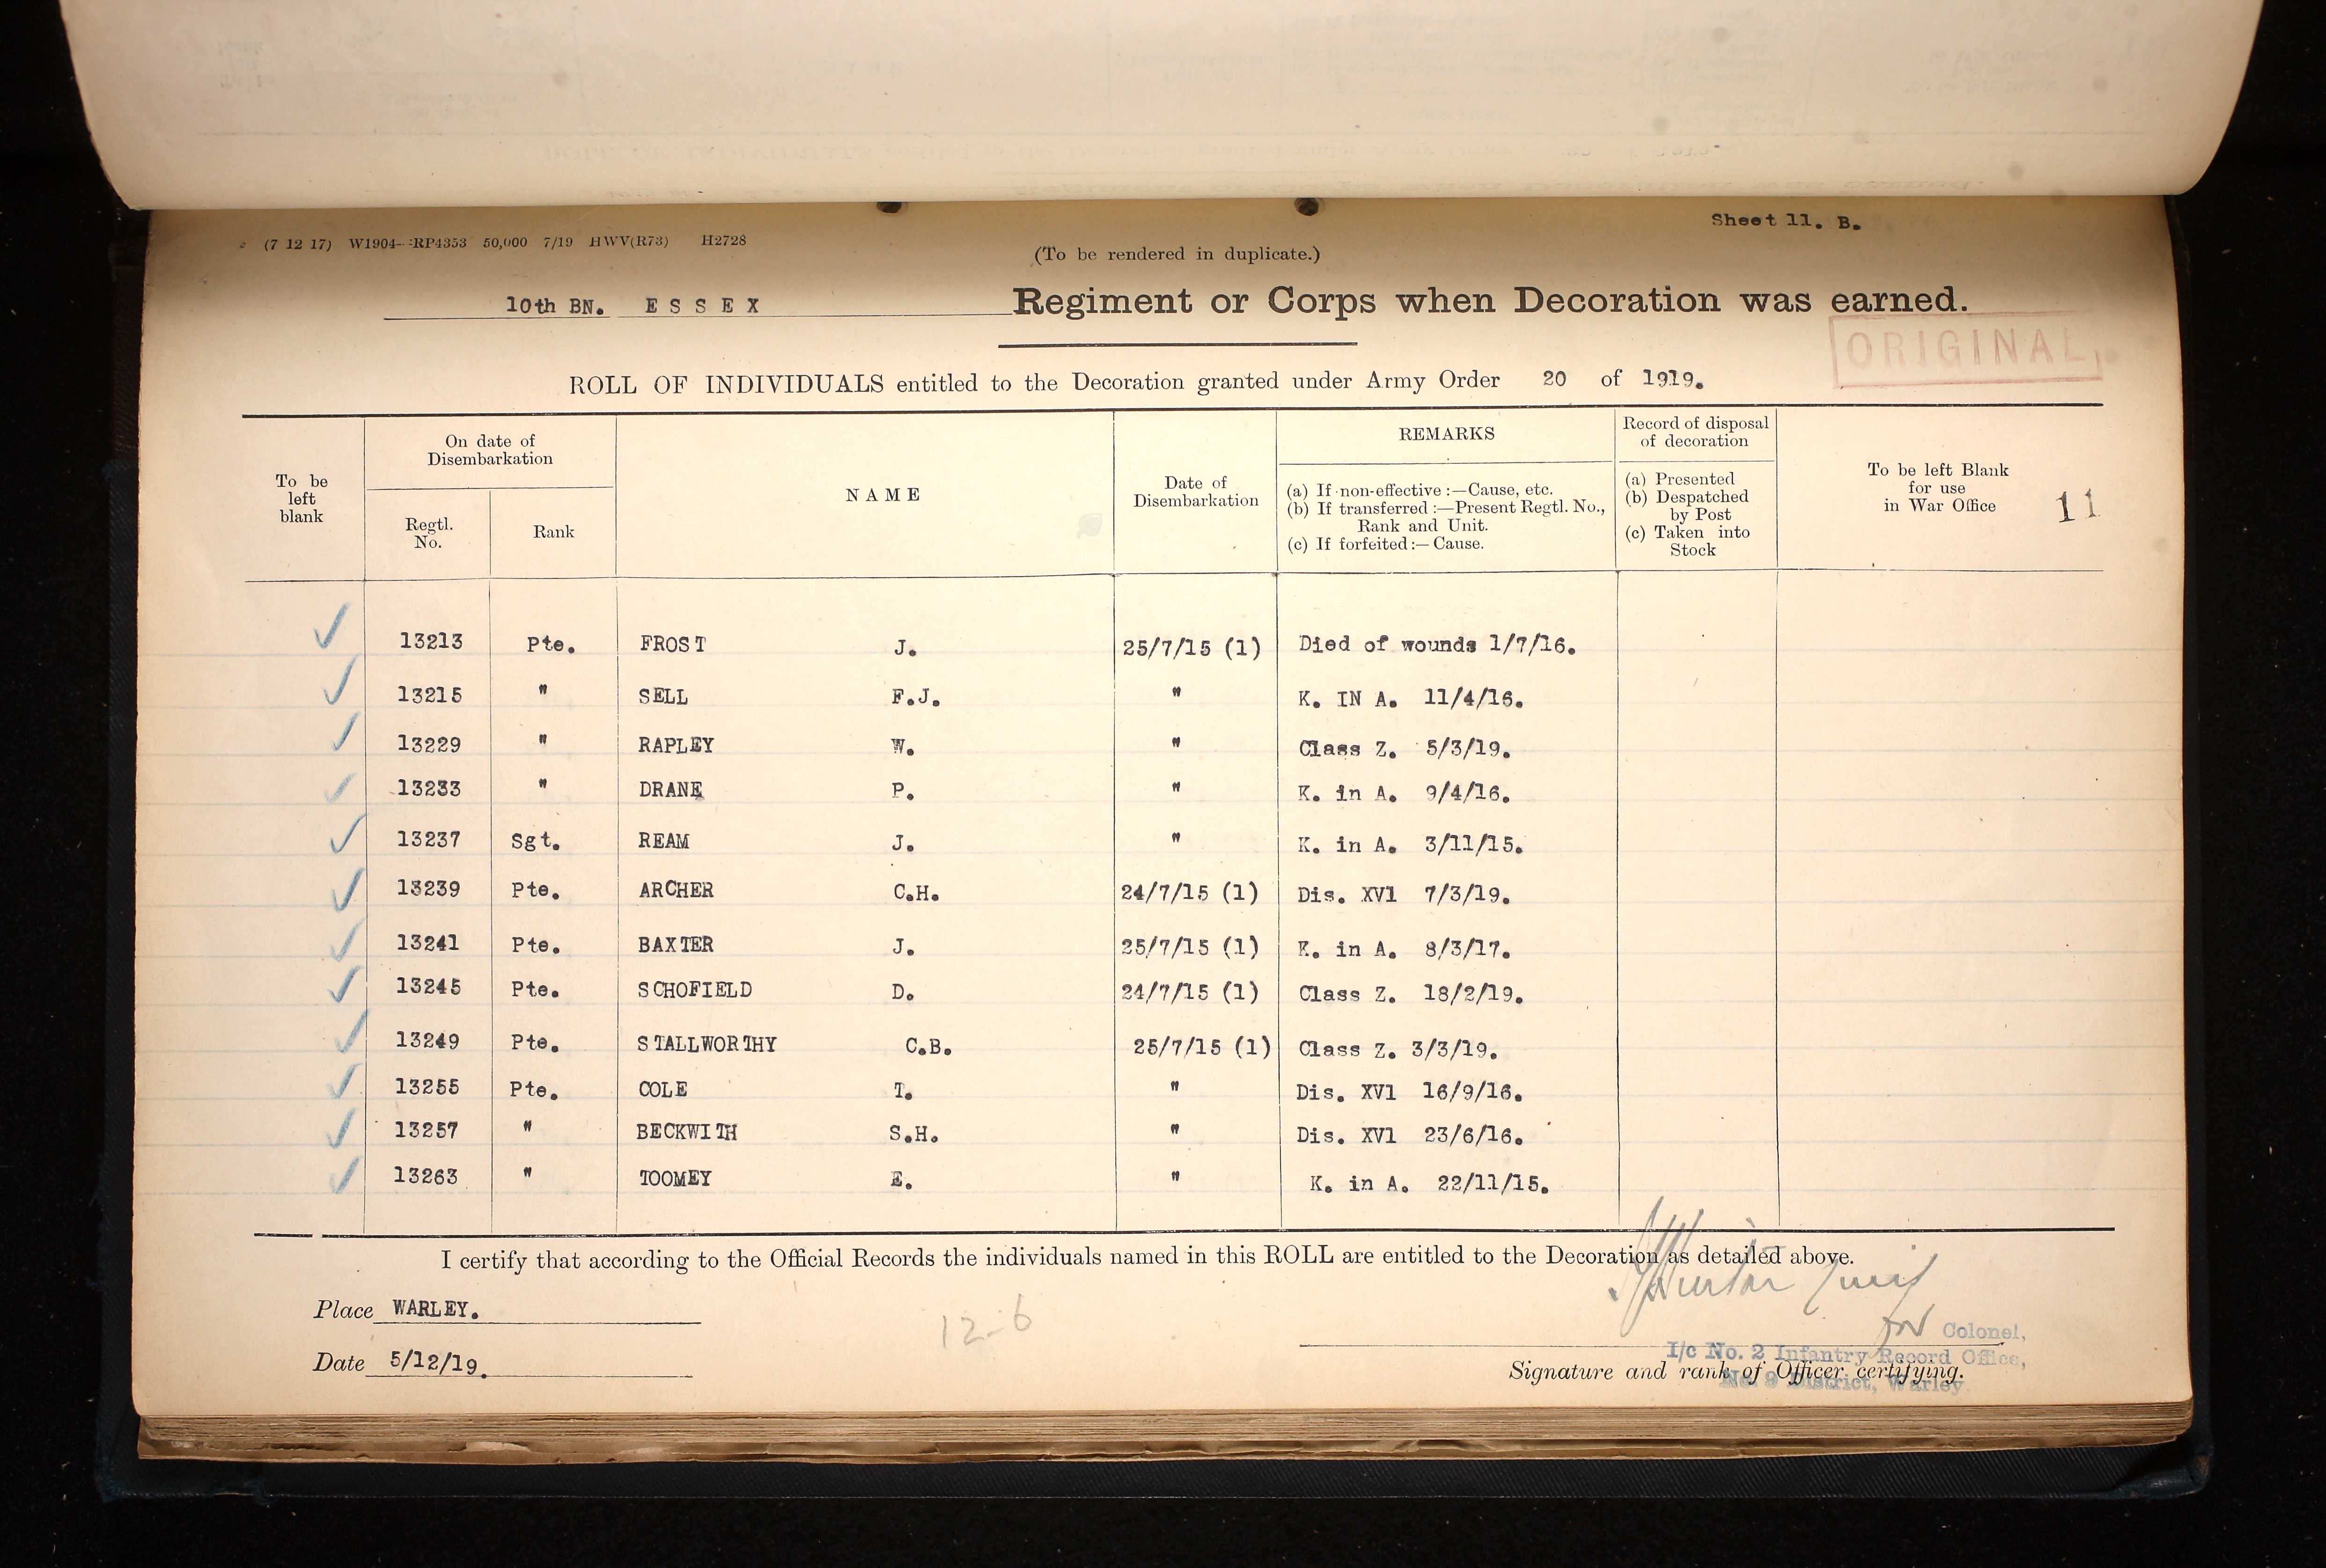 Sheet 11. B.
(7 12 17) W1904—RP4353 50,000 7/19 HWV(R73) H2728
(To be rendered in duplicate.)
10th BN. E S S E X Regiment or Corps when Decoration was earned.
ORIGINAL
ROLL OF INDIVIDUALS entitled to the Decoration granted under Army Order 20 of 1919.
To be left blank
On date of Disembarkation
Regtl. No.
Rank
NAME
Date of Disembarkation
REMARKS
(a) If non-effective :—Cause, etc.
(b) If transferred :—Present Regtl. No., Rank and Unit.
(c) If forfeited :— Cause.
Record of disposal of decoration
(a) Presented
(b) Despatched by Post
(c) Taken into Stock
To be left Blank for use in War Office
11
13213 Pte. FROST J. 25/7/15 (1) Died of wounds 1/7/16.
13215 " SELL F.J. " K. IN A. 11/4/16.
13229 " RAPLEY W. " Class Z. 5/3/19.
13233 " DRANE P. " K. in A. 9/4/16.
13237 Sgt. REAM J. " K. in A. 3/11/15.
13239 Pte. ARCHER C.H. 24/7/15 (1) Dis. XV1 7/3/19.
13241 Pte. BAXTER J. 25/7/15 (1) K. in A. 8/3/17.
13245 Pte. SCHOFIELD D. 24/7/15 (1) Class Z. 18/2/19.
13249 Pte. STALLWORTHY C.B. 25/7/15 (1) Class Z. 3/3/19.
13255 Pte. COLE T. " Dis. XV1 16/9/16.
13257 " BECKWITH S.H. " Dis. XV1 23/6/16.
13263 " TOOMEY E. " K. in A. 22/11/15.
I certify that according to the Official Records the individuals named in this ROLL are entitled to the Decoration as detailed above.
Place WARLEY.
12-6
for Colonel,
I/c No. 2 Infantry Record Office,
Date 5/12/19.
Signature and rank of Officer certifying.
No. 9 District, Warley